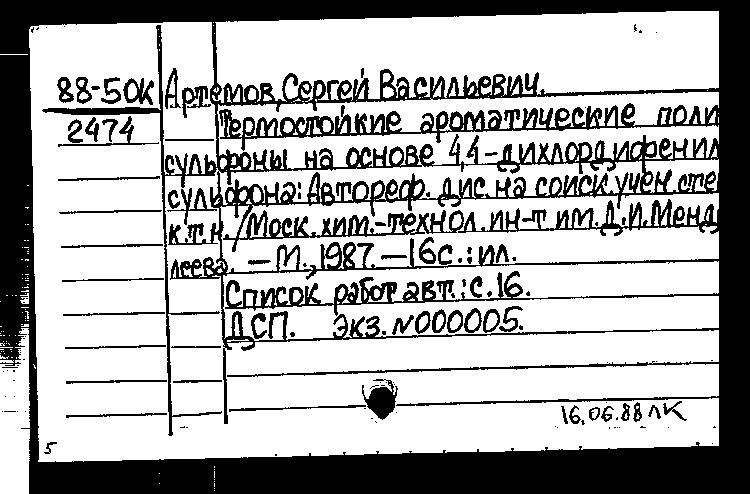 88-50К Артемов, Сергей Васильевич.
2474 Термостойкие ароматические поли
сульфоны на основе 4,4-дихлордифенил
сульфона: Автореф. дис. на соиск. учен. сте
к.т.н. /Моск. хим.-технол. ин-т им. Д.И. Менд
леева. – М., 1987. – 16с.: ил.
Список работ авт.: с. 16.
ДСП. Экз. N000005.
16.06.88 ЛК
5